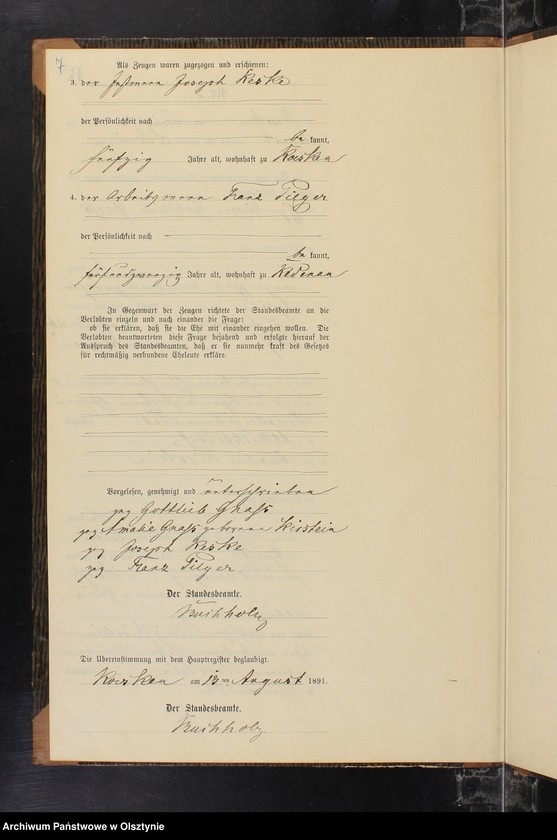 7
Als Zeugen waren zugezogen und erschienen:
3. der Joseph Keske
der Persönlichkeit nach
be kannt,
fünfzig Jahre alt, wohnhaft zu
4. der Arbeitsmann Franz Pilger
der Persönlichkeit nach
be kannt,
fünfundzwanzig Jahre alt, wohnhaft zu Redenau
In Gegenwart der Zeugen richtete der Standesbeamte an die
Verlobten einzeln und nach einander die Frage:
ob sie erklären, daß sie die Ehe mit einander eingehen wollen. Die
Verlobten beantworteten diese Frage bejahend und erfolgte hierauf der
Ausspruch des Standesbeamten, daß er sie nunmehr kraft des Gesetzes
für rechtmäßig verbundene Eheleute erkläre.
Vorgelesen, genehmigt und unterschrieben
gez Gottlieb Gnaß
gez Amalie Gnaß geborene Kirstein
gez Joseph Keske
gez Franz Pilger
Der Standesbeamte.
Buchholz
Die Übereinstimmung mit dem Hauptregister beglaubigt.
am 13 ten August 1891.
Der Standesbeamte.
Buchholz.
Archiwum Państwowe w Olsztynie